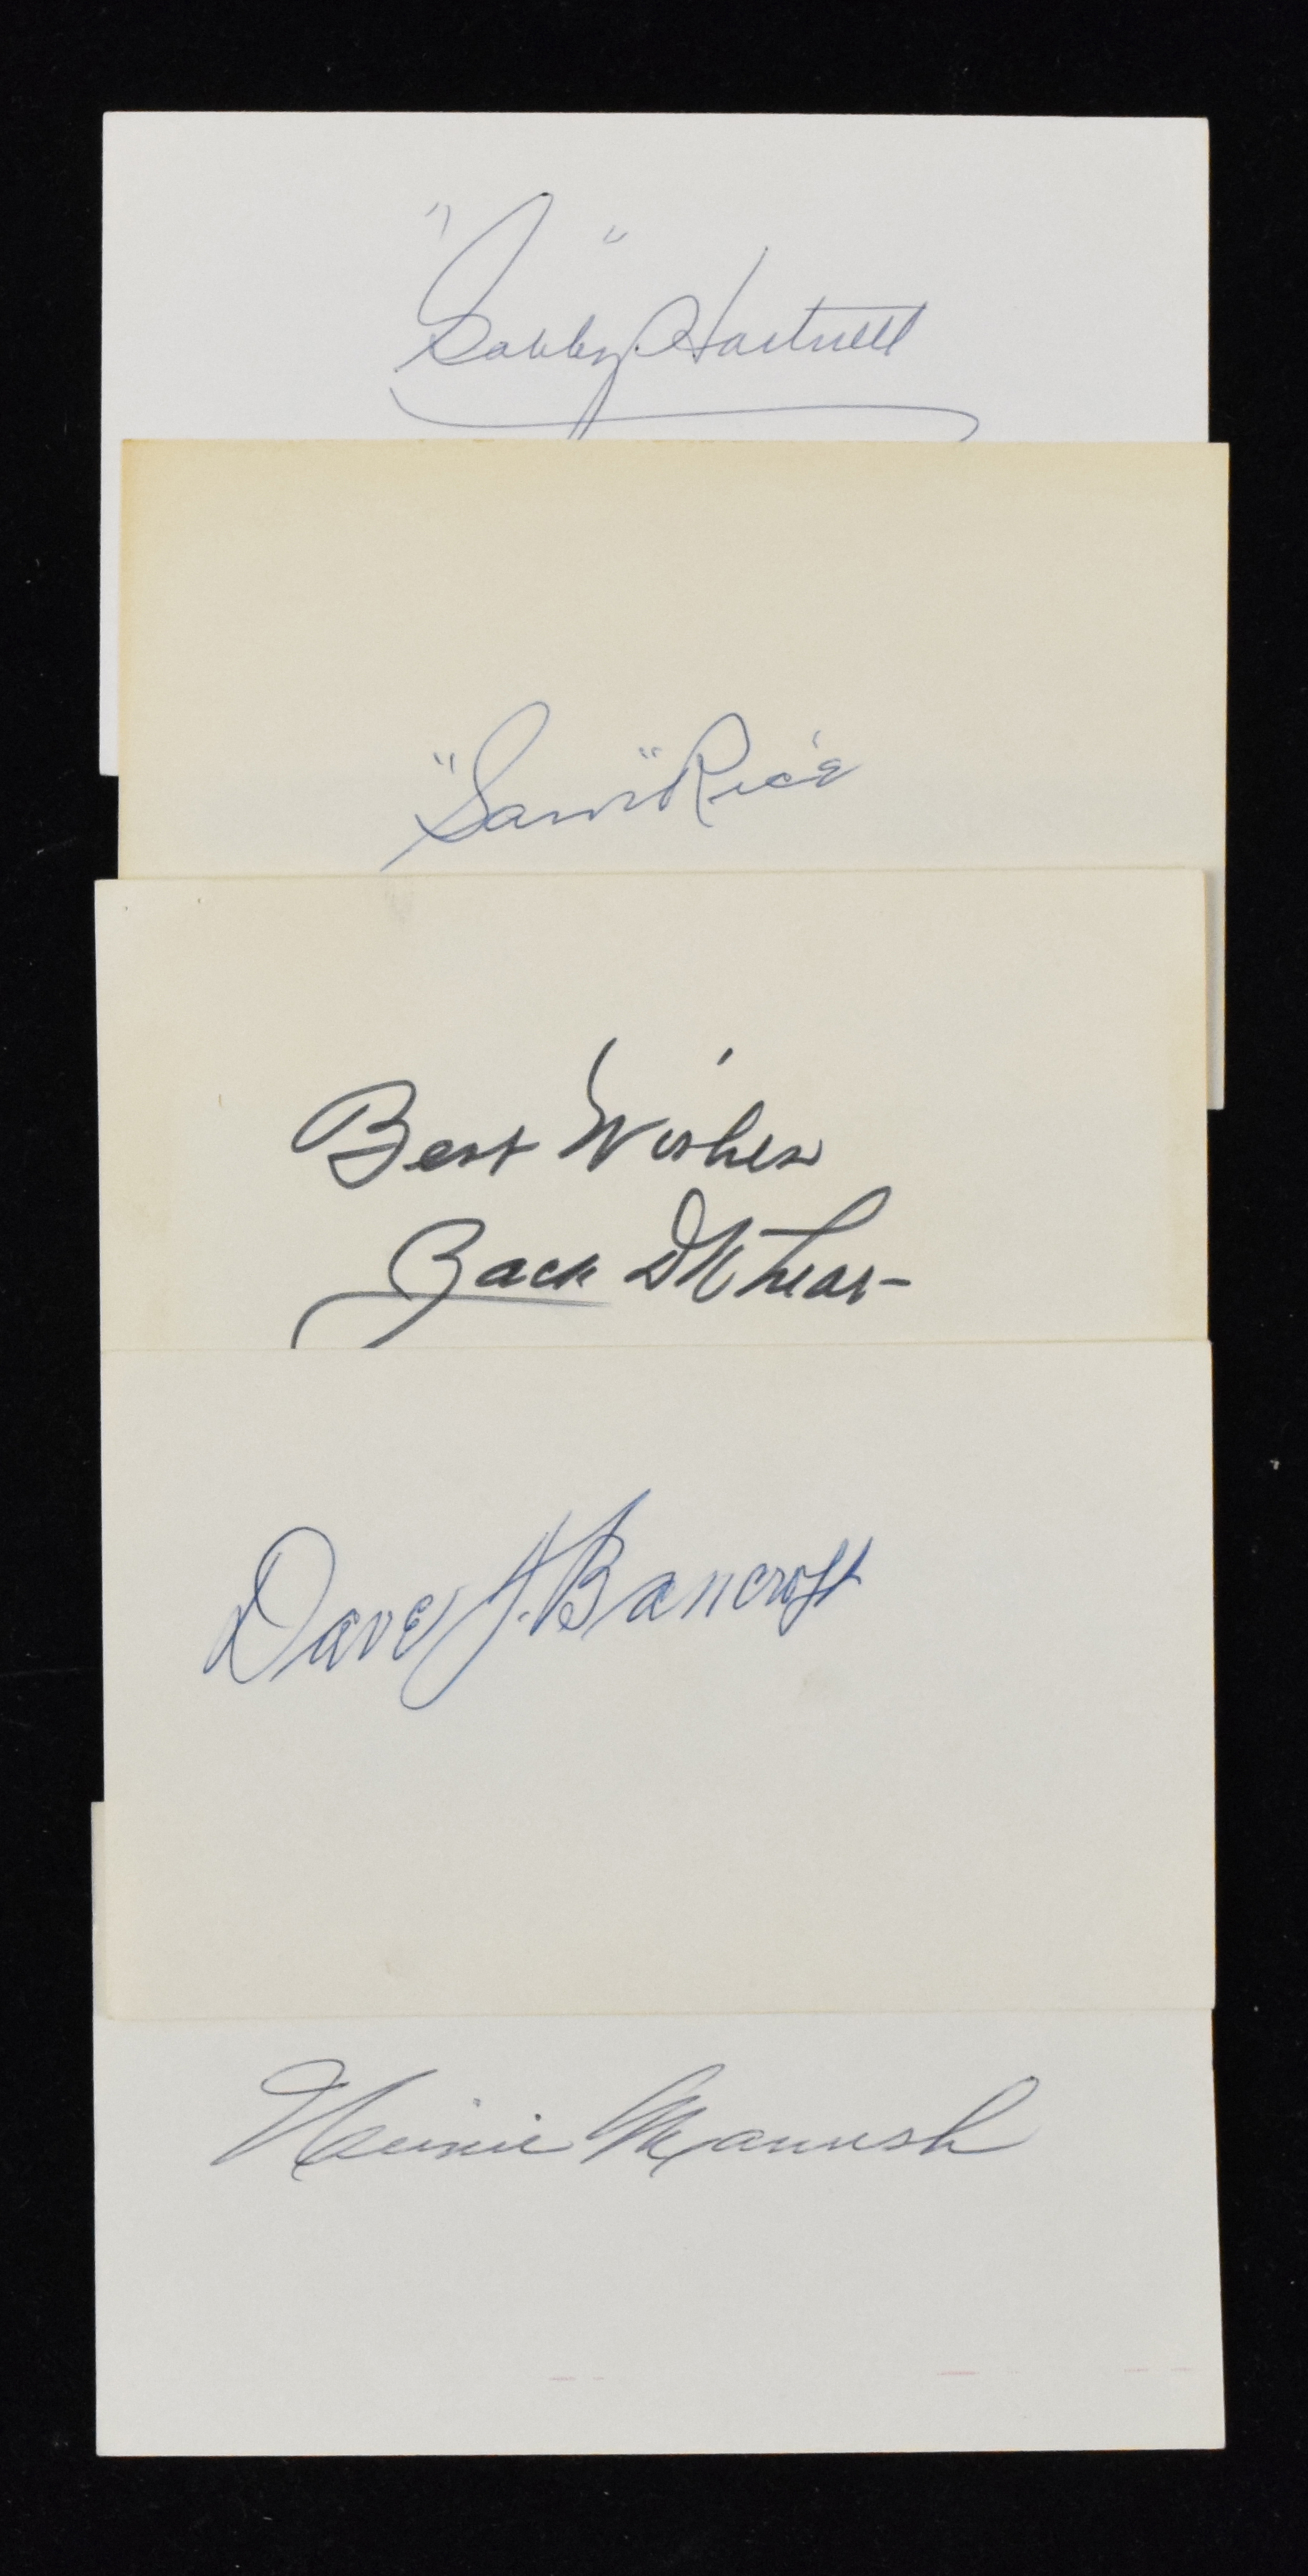 "Gabby" Hartnett
"Sam" Rice
Best Wishes
Zack D Wheat
Dave J. Bancroft
Heinie Manush